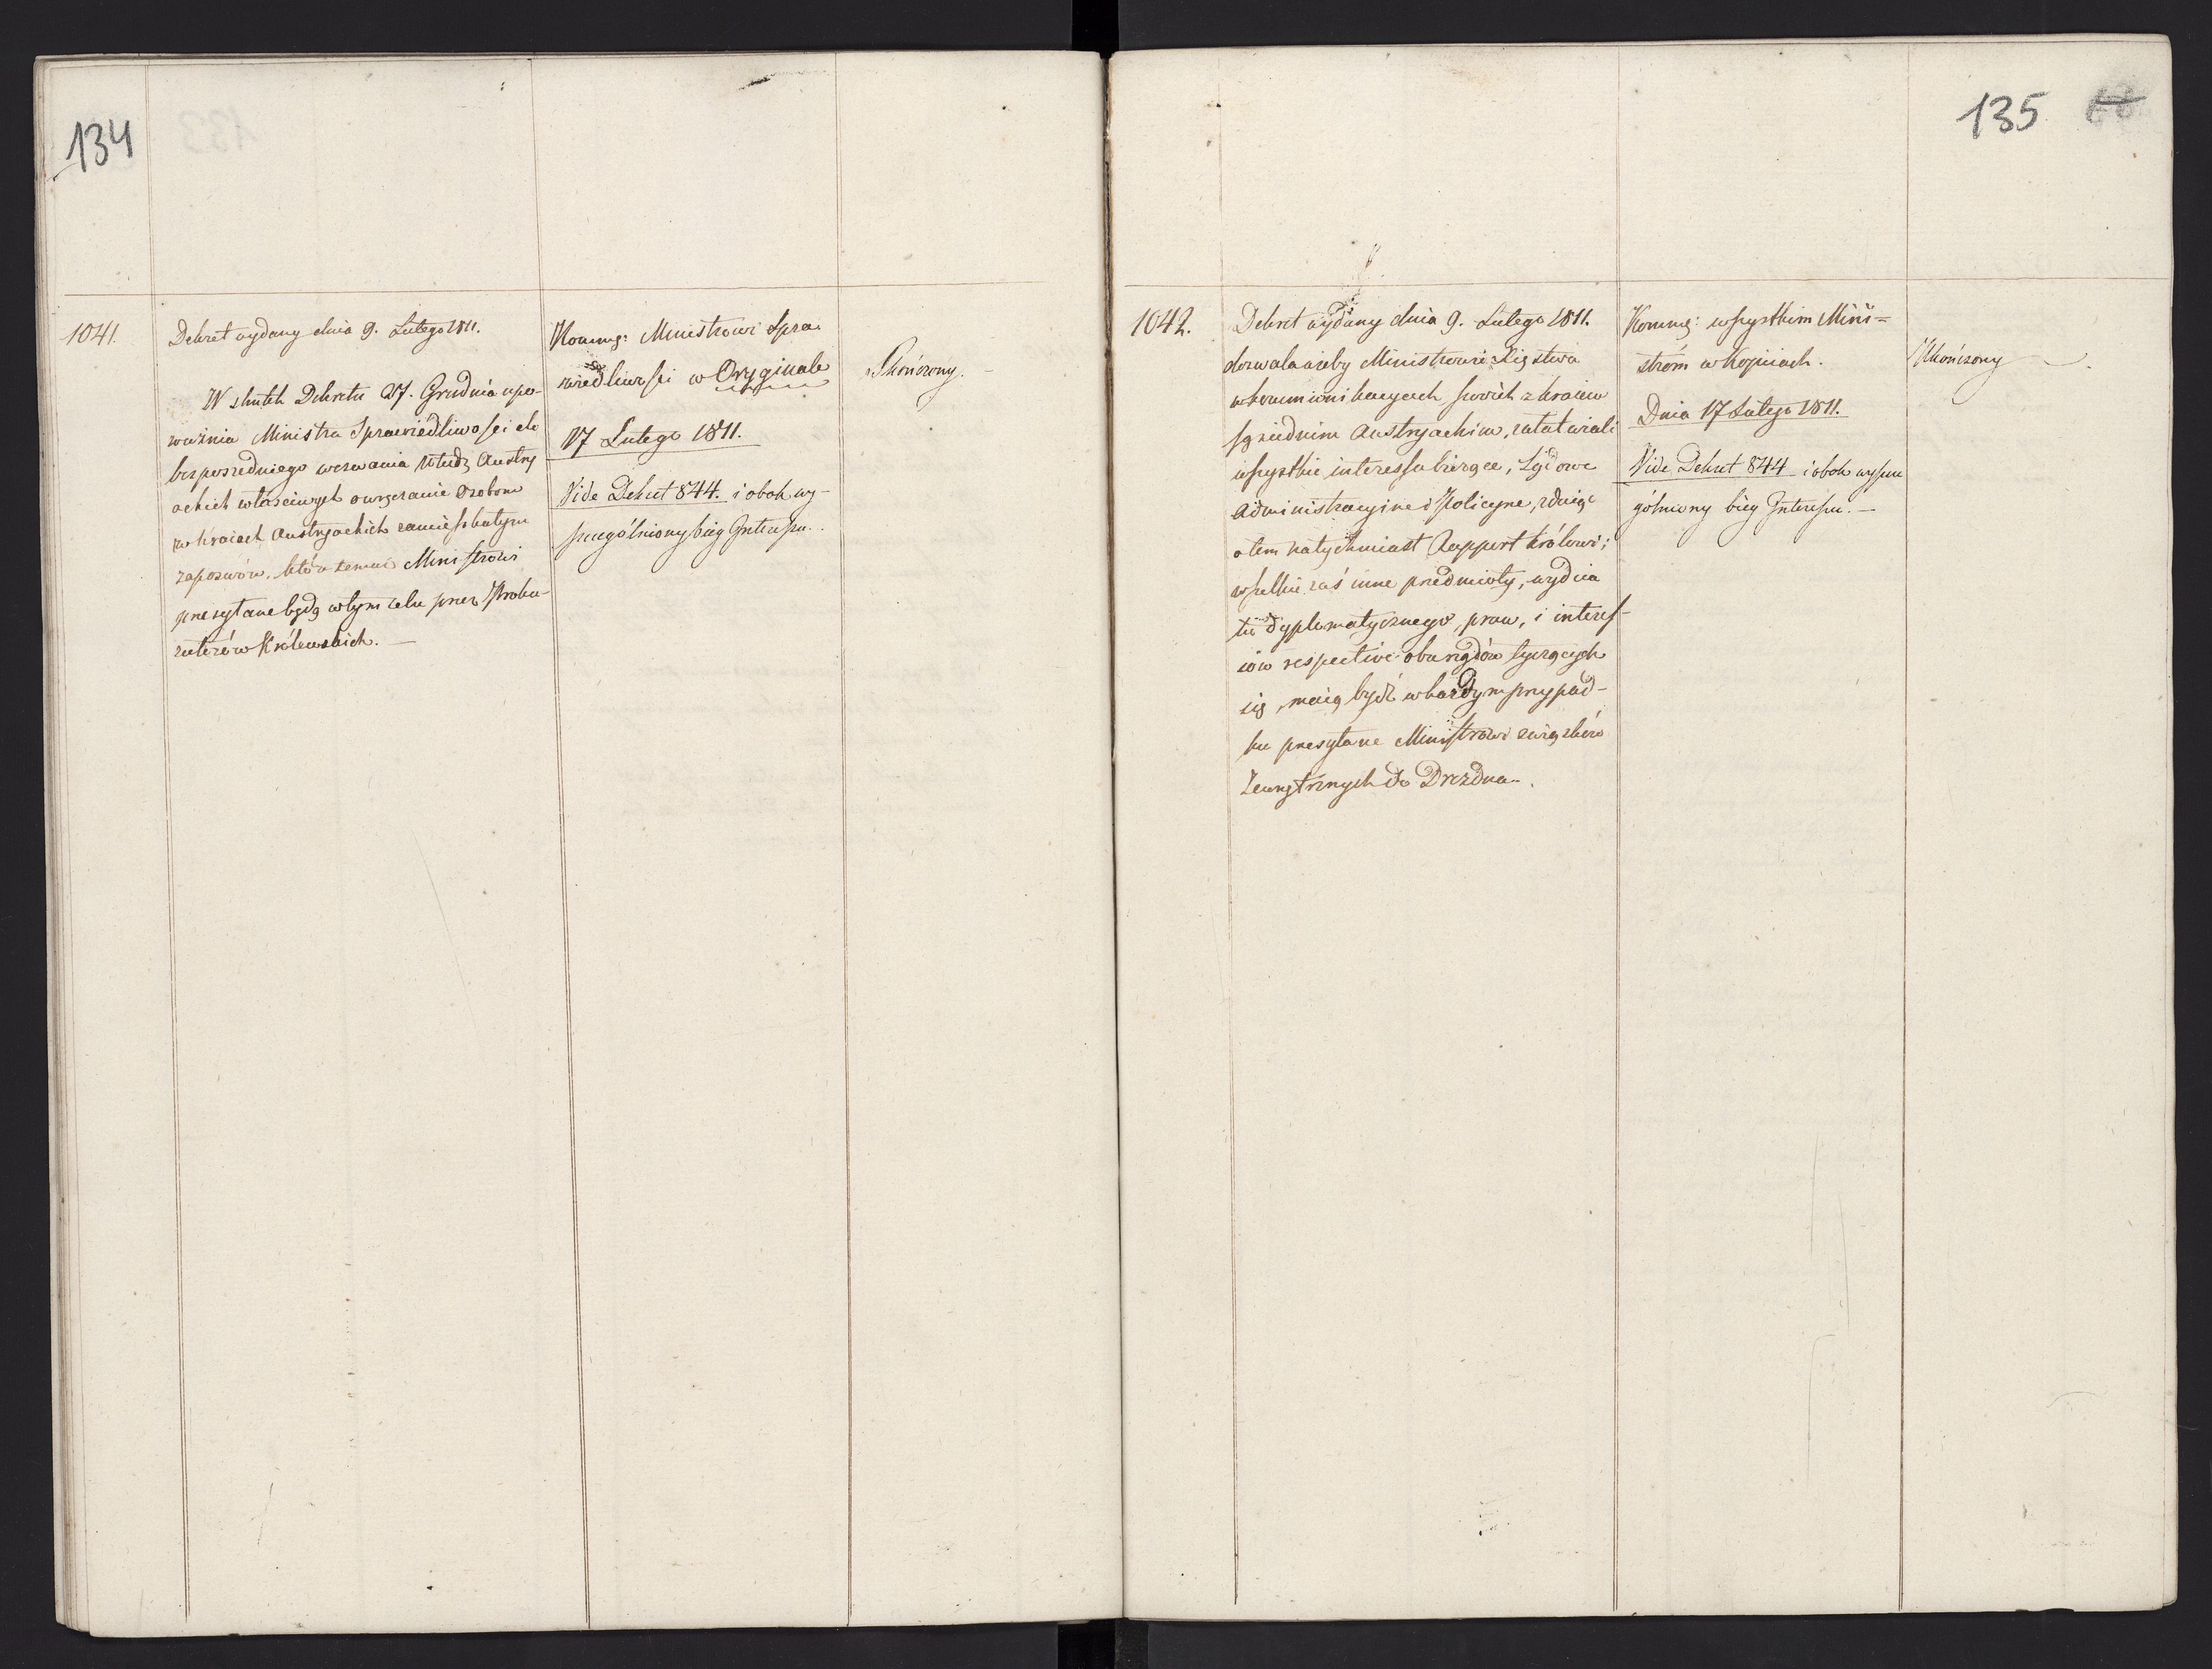 134
1041.
Dekret wydany dnia 9. Lutego 1811.
W skutek Dekretu 27. Grudnia upo-
ważnia Ministra Sprawiedliwości do
bezpośredniego wezwania Władz Austry
ackich właściwych o wręczanie osobom
w kraiach Austryackich zamieszkałym
zapozwów, które temuż Ministrowi
przesyłane będą w tym celu przez Proku-
ratorów Królewskich. —
Kommg: Ministrowi Spra
wiedliwości w Oryginale
17 Lutego 1811.
Vide Dekret 844. i obok wy-
szczególniony bieg Interesu.
Skończony.
135
1042.
Dekret wydany dnia 9. Lutego 1811.
dozwala ażeby Ministrowie Xięstwa
w kommunikacyach swoich z kraiem
sąsiednim Austryackim, załatwiali
wszystkie interessa bieżące, Sądowe
Administracyine i Policyine, zdaiąc
o tem natychmiast Rapport Królowi;
wszelkie zaś inne przedmioty, wydzia
łu dyplomatycznego, praw, i interes-
sów respective obu rządów tyczących
się, maią bydź w każdym przypad-
ku przesyłane Ministrowi związków
Zewnętrznych do Drezdna.
Kommg: wszystkim Mini=
stróm w kopiiach.
Dnia 17 Lutego 1811.
Vide Dekret 844 i obok wyszcze
gólniony bieg Interesu. —
Ukończony